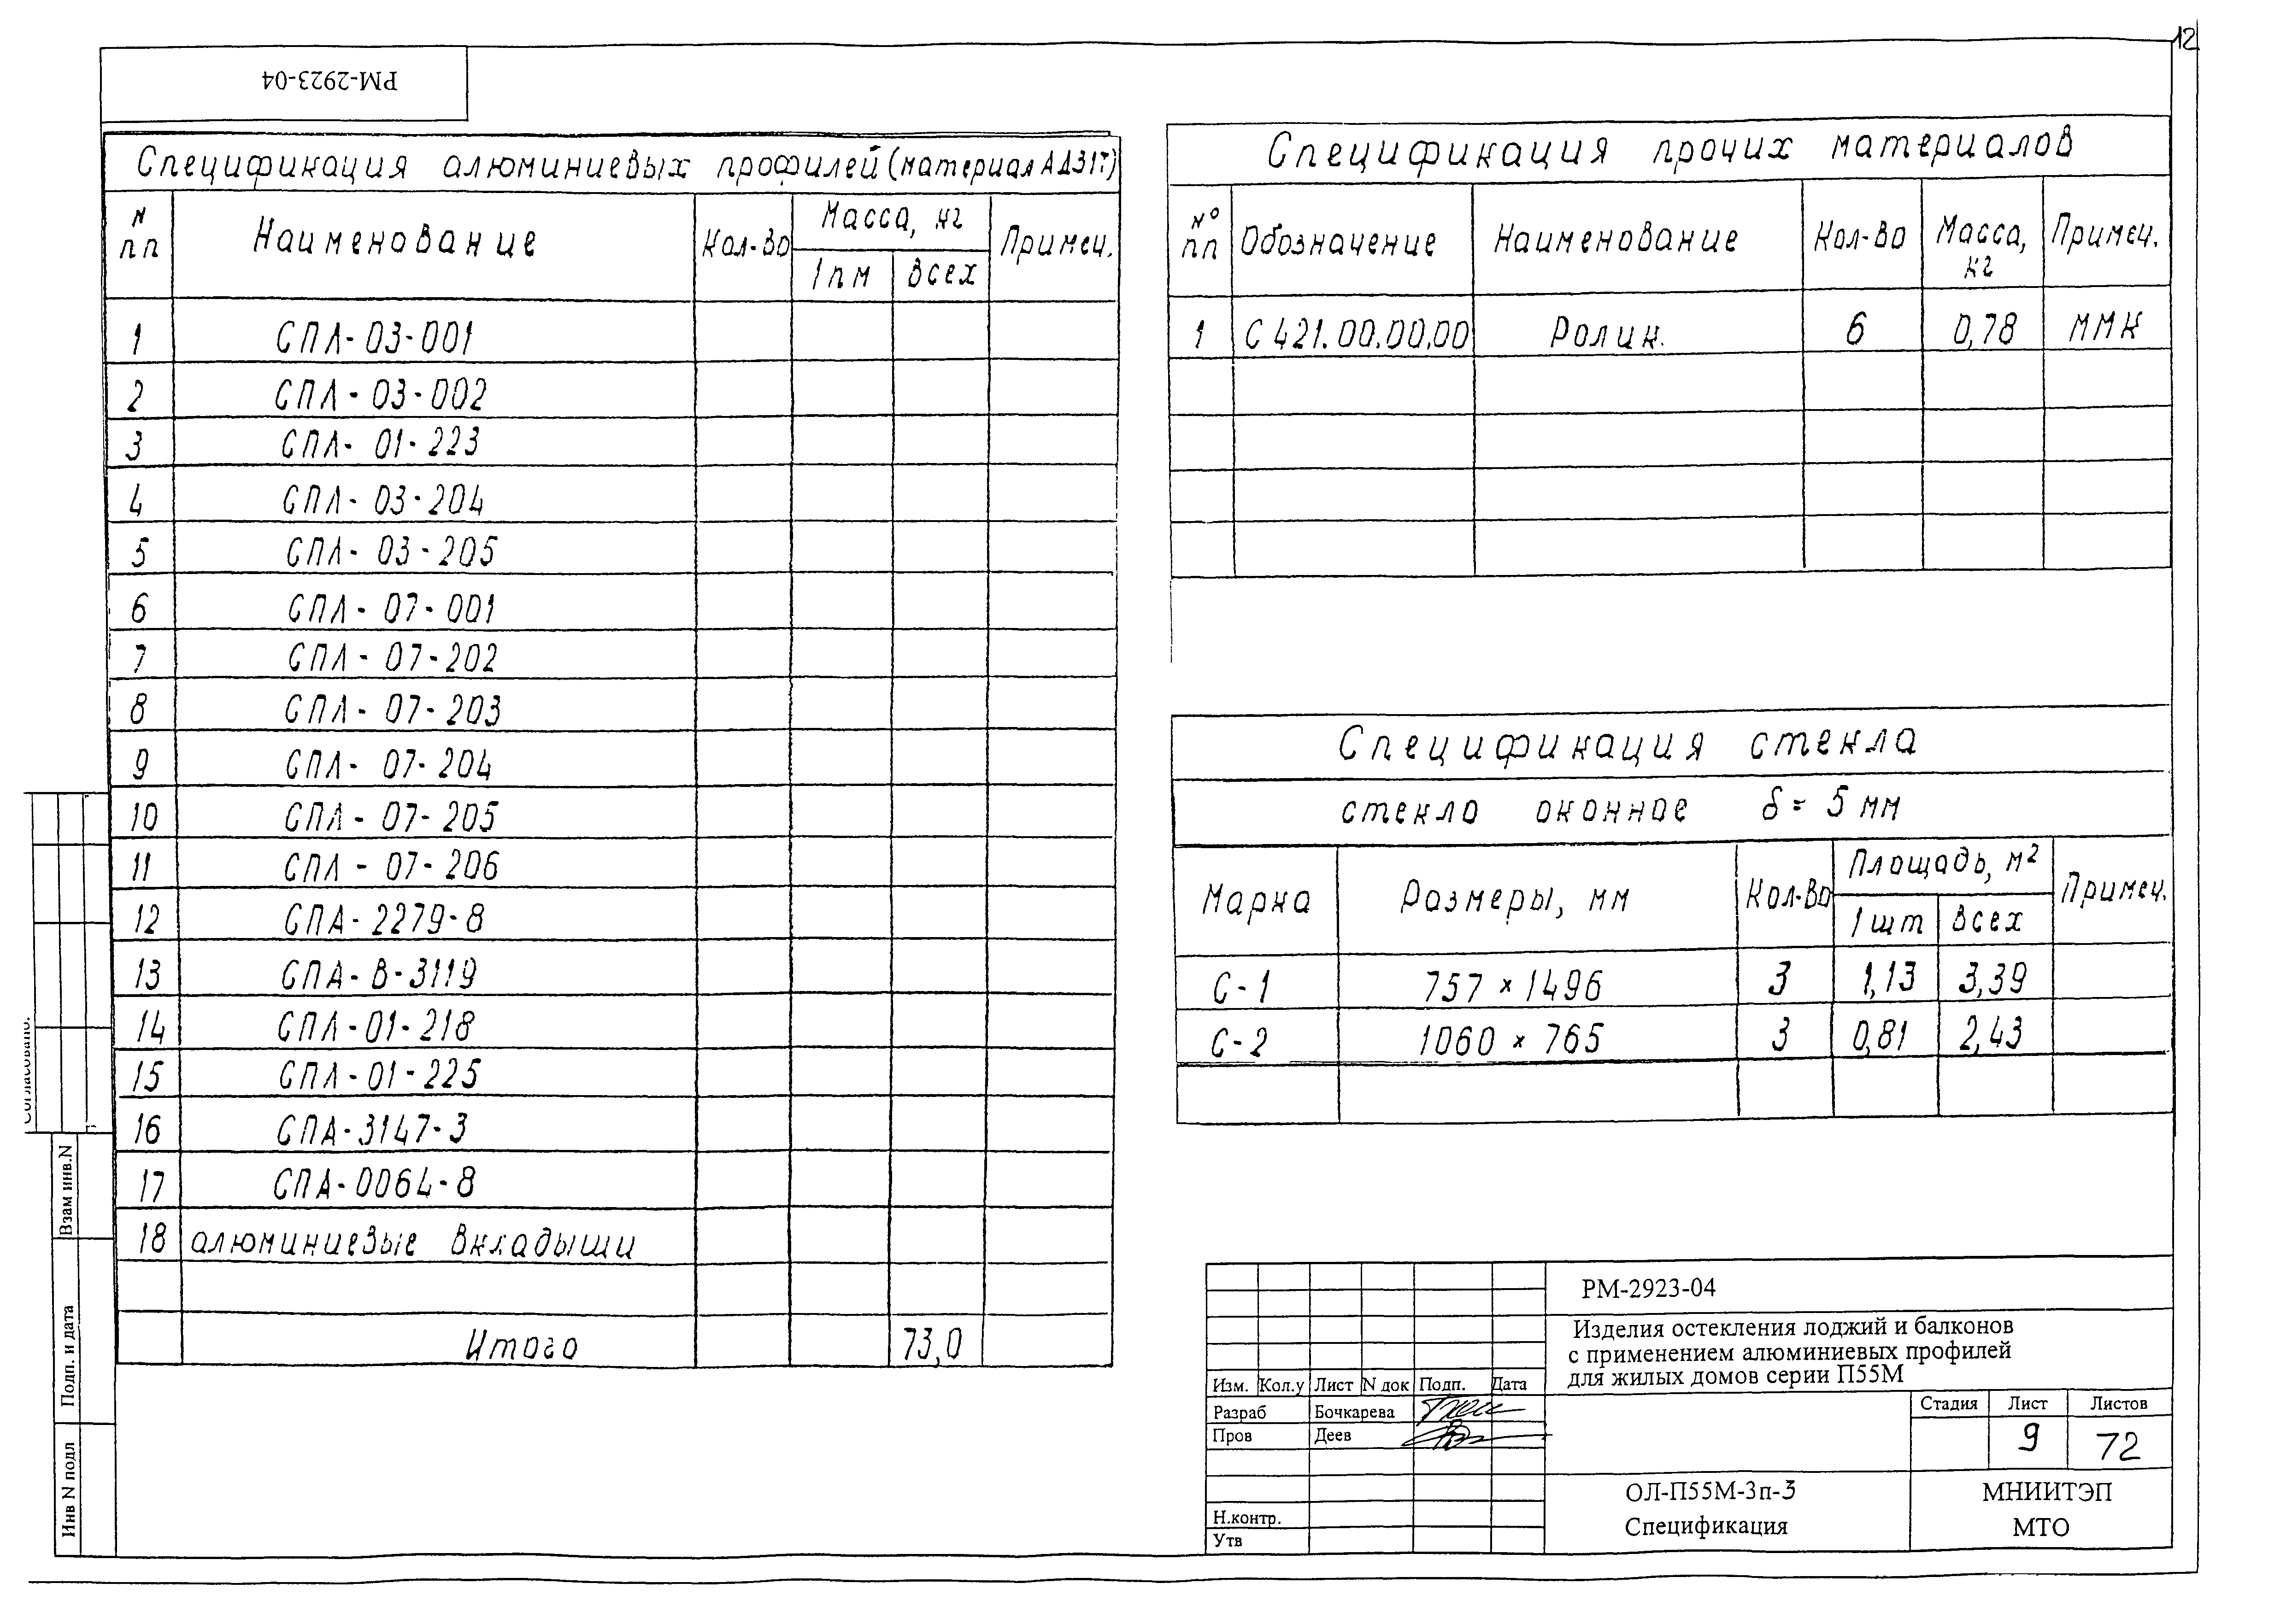 12
РМ-2923-04
Спецификация алюминиевых профилей (материал АД31Т)
N пп Наименование Кол-во Масса, кг Примеч.
1пм всех
1 СПЛ-03-001
2 СПЛ-03-002
3 СПЛ-01-223
4 СПЛ-03-204
5 СПЛ-03-205
6 СПЛ-07-001
7 СПЛ-07-202
8 СПЛ-07-203
9 СПЛ-07-204
10 СПЛ-07-205
11 СПЛ-07-206
12 СПА-2279-8
13 СПА-В-3119
14 СПЛ-01-218
15 СПЛ-01-225
16 СПА-3147-3
17 СПА-0064-8
18 алюминиевые вкладыши
Итого 73,0
Спецификация прочих материалов
№ пп Обозначение Наименование Кол-во Масса, кг Примеч.
1 С 421.00.00.00 Ролик. 6 0,78 ММК
Спецификация стекла
стекло оконное δ = 5 мм
Марка Размеры, мм Кол-во Площадь, м² Примеч.
1 шт всех
С-1 757 × 1496 3 1,13 3,39
С-2 1060 × 765 3 0,81 2,43
Согласовано:
Взам инв.N
Подп. и дата
Инв N подл
РМ-2923-04
Изделия остекления лоджий и балконов
с применением алюминиевых профилей
для жилых домов серии П55М
Изм. Кол.у Лист N док Подп. Дата
Разраб Бочкарева
Пров Деев
Н.контр.
Утв
Стадия Лист Листов
9 72
ОЛ-П55М-3п-3
Спецификация
МНИИТЭП
МТО